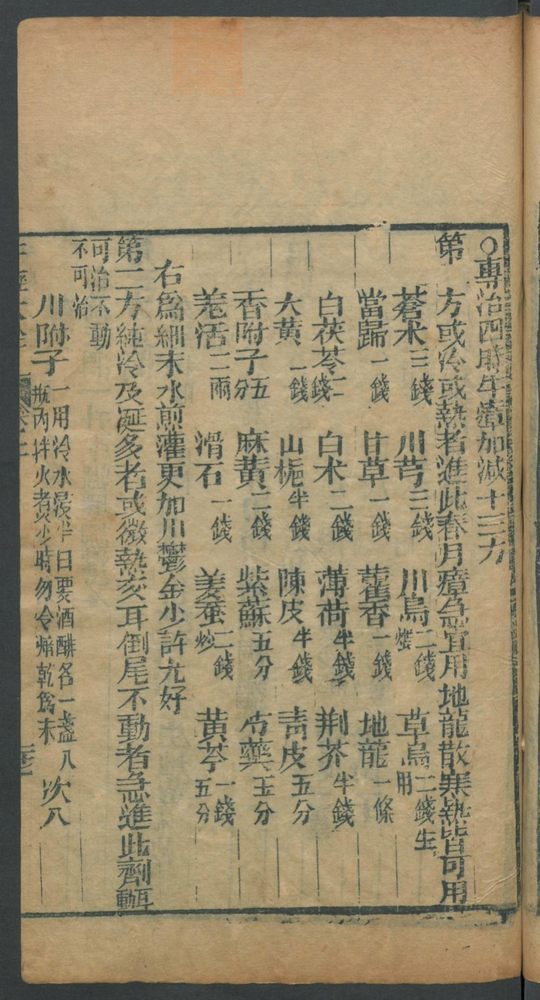 ○專治四時牛瘴加減十三方
第一方或冷或熱者進此春月瘴急宜用地龍散寒熱皆可用
蒼朮三錢 川芎三錢 川烏二錢 草烏二錢生用
當歸一錢 甘草一錢 藿香一錢 地龍一條
白茯苓二錢 白朮二錢 薄荷半錢 荆芥半錢
大黃一錢 山梔半錢 陳皮半錢 青皮五分
香附子五分 麻黃二錢 紫蘇五分 藥五分
羌活二兩 滑石一錢 姜蚕二錢炒 黃芩一錢五分
右爲細末水煎灌更加川鬱金少許尤好
第二方純冷及涎多者或微熱亥耳倒尾不動者急進此劑輕
可治不動
不可治
川附子
一用冷水浸半日要酒醋各一盞八次八
瓶內拌火煮少時勿令焦乾爲末